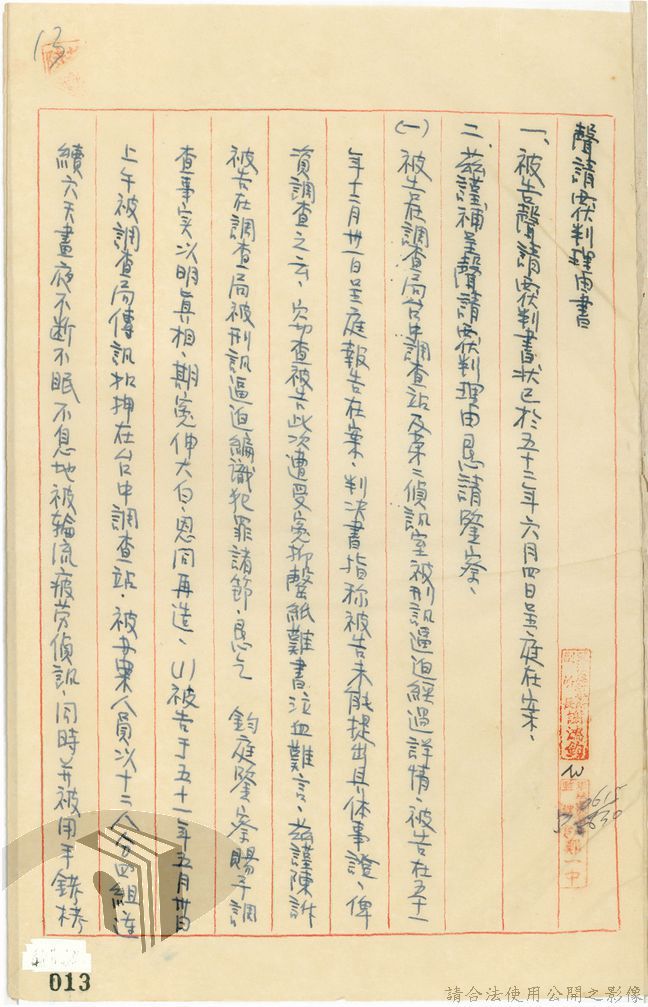 聲請覆判理由書
一、被告聲請覆判書狀已於五十三年六月四日呈庭在案、
二、茲謹補呈聲請覆判理由懇請鑒察、
(一)被告在調查局台中調查站及第二偵訊室被刑訊逼迫經過詳情、被告在五十一
年十二月廿一日呈庭報告在案、判決書指称被告未能提出具体事證、俾
資調查之云、窃查被告此次遭受寃抑罄紙難書泣血難言、茲謹陳訴
被告在調查局被刑訊逼迫編識犯罪諸節、懇乞 鈞庭鑒察賜予調
查事实以明真相、期寃伸大白、恩同再造、(1)被告于五十一年五月卅日
上午被調查局傳訊扣押在台中調查站、被办案人員以十二人分四組連
續六天晝夜不断不眠不息地被輪流疲劳偵訊、同時并被用手銬栲
13
0615
0830
013
請合法使用公開之影像